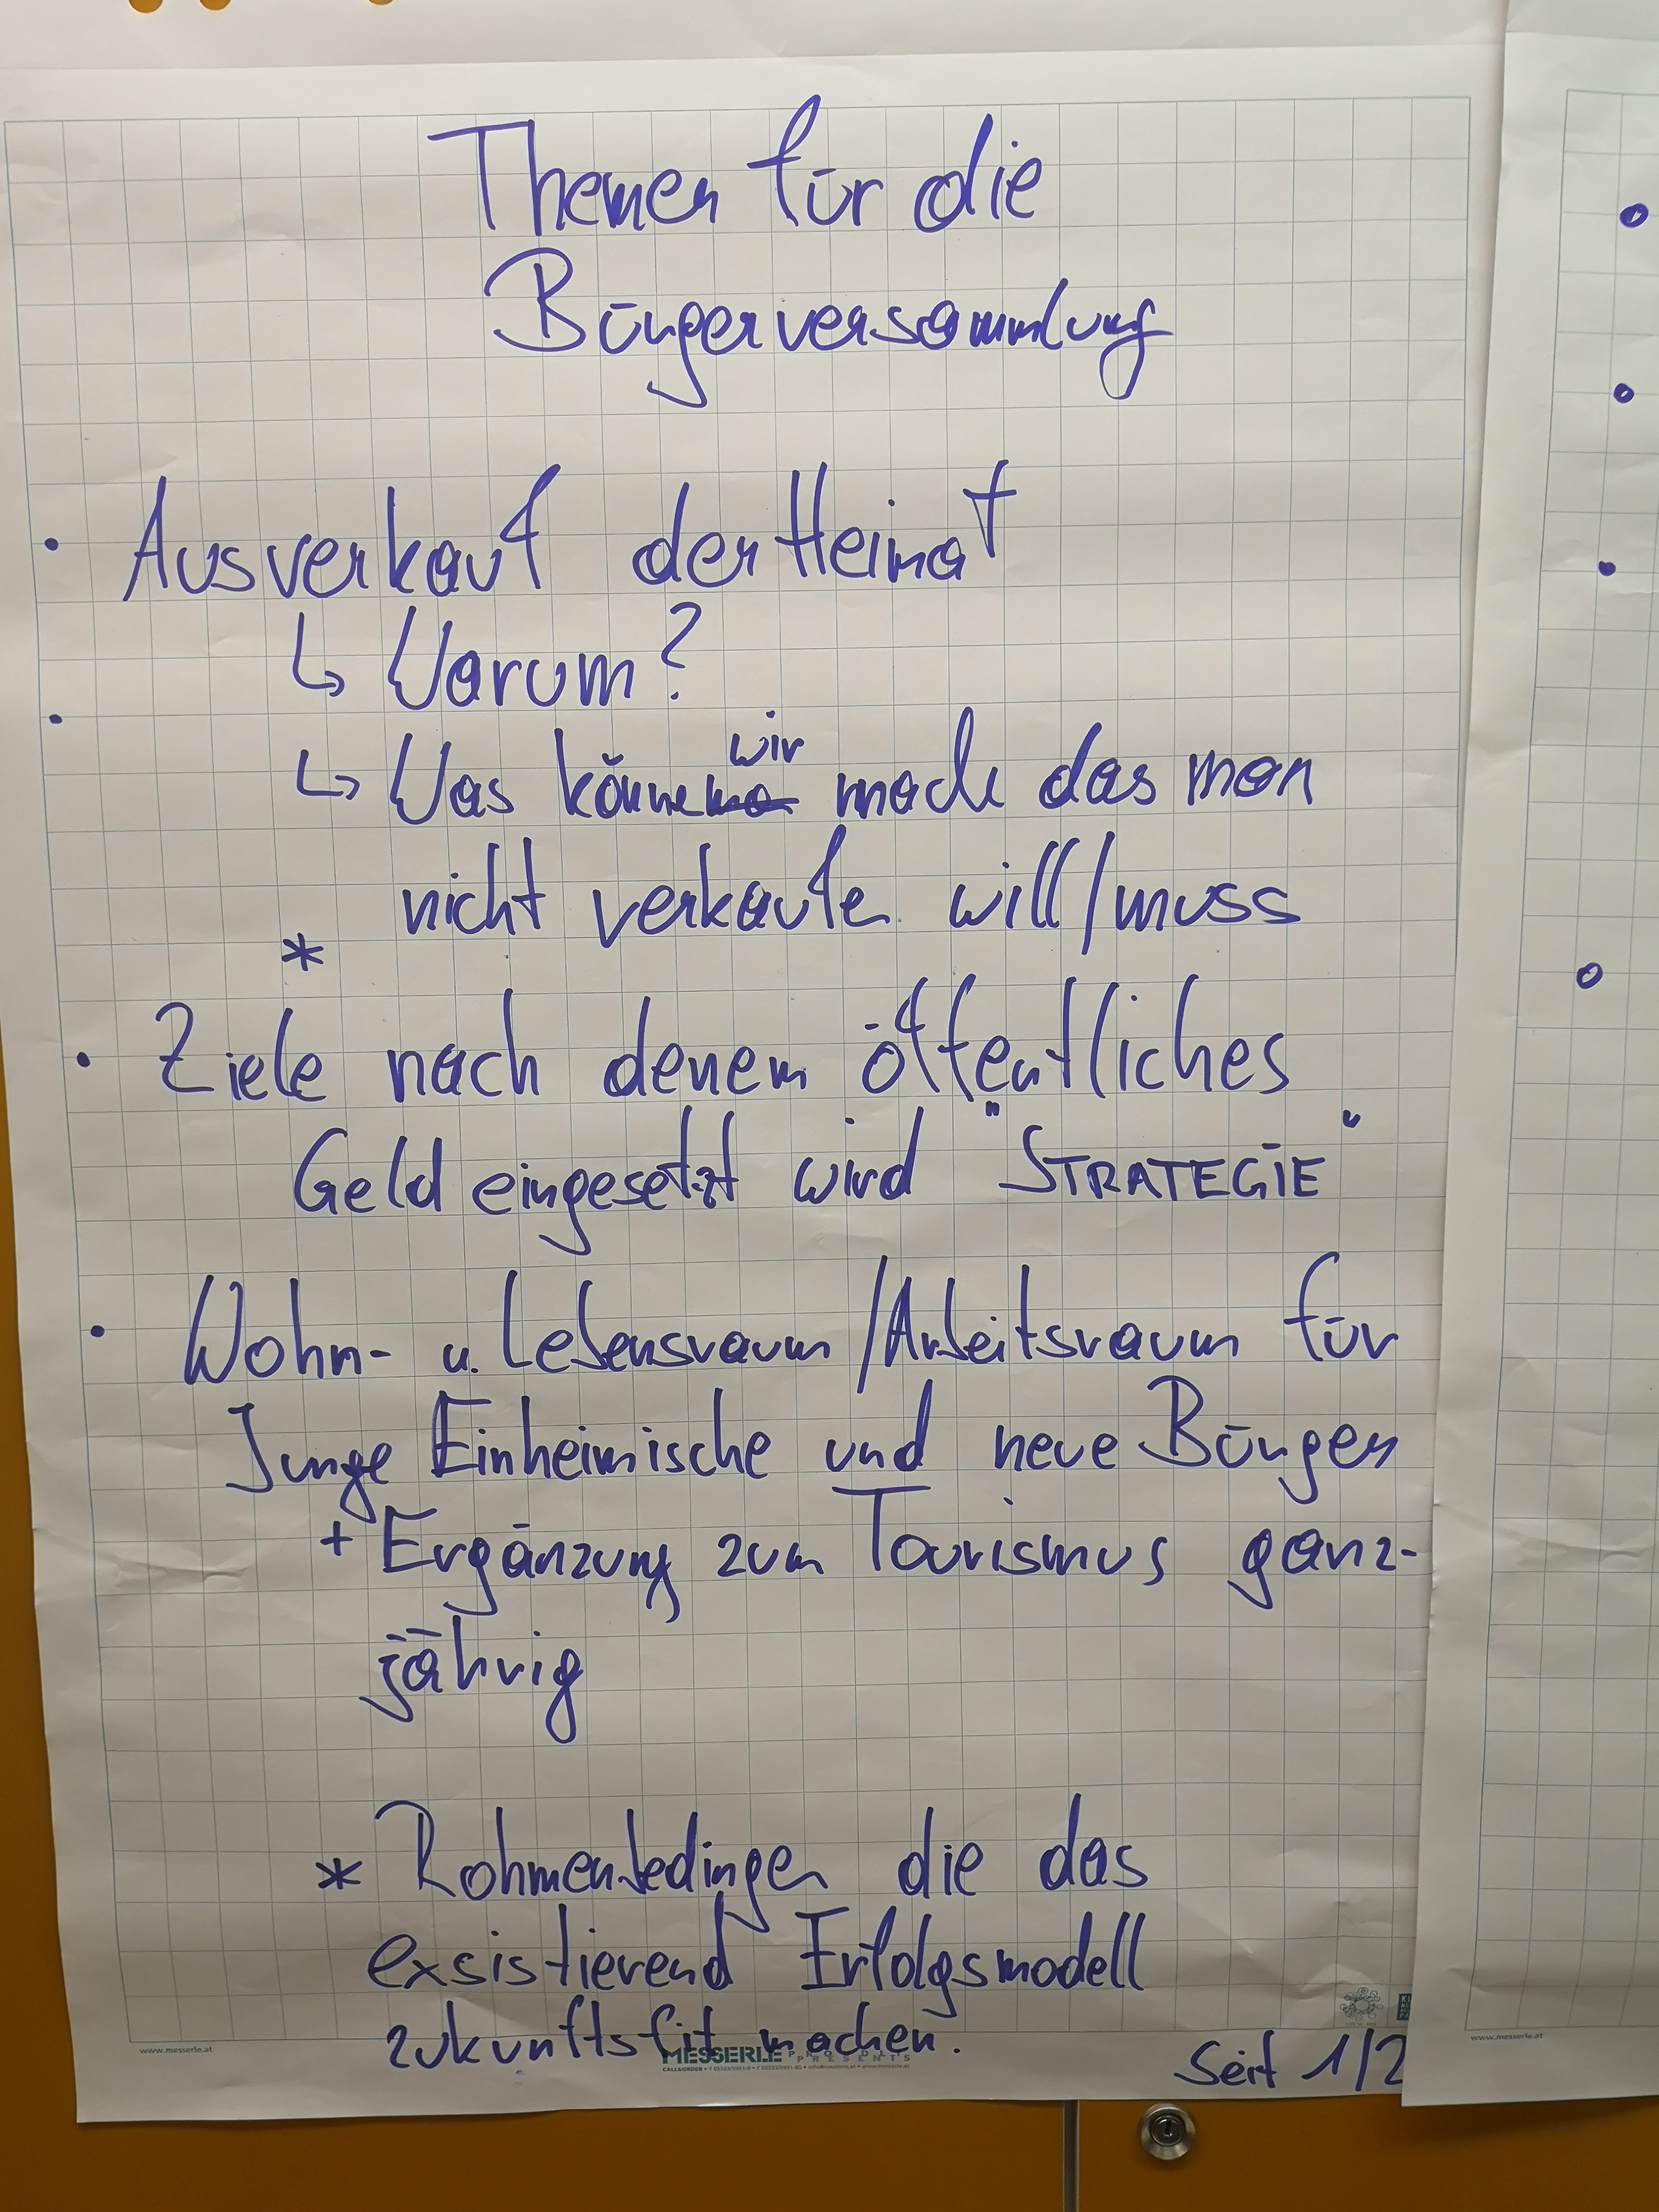 Themen für die
Bürgerversammlung
• Ausverkauf der Heimat
↳ Warum?
wir
↳ Was könne mache das man
nicht verkaufe will/muss
*
• Ziele nach denem öffentliches
Geld eingesetzt wird "STRATEGIE"
• Wohn- u. Lebensraum/Arbeitsraum für
Junge Einheimische und neue Bürger
+ Ergänzung zum Tourismus ganz-
jährig
* Rahmenbedingen die das
exsistierend Erfolgsmodell
zukunftsfit machen.
Seit 1/2
www.messerle.at
MESSERLE
PRESENTS
www.messerle.at